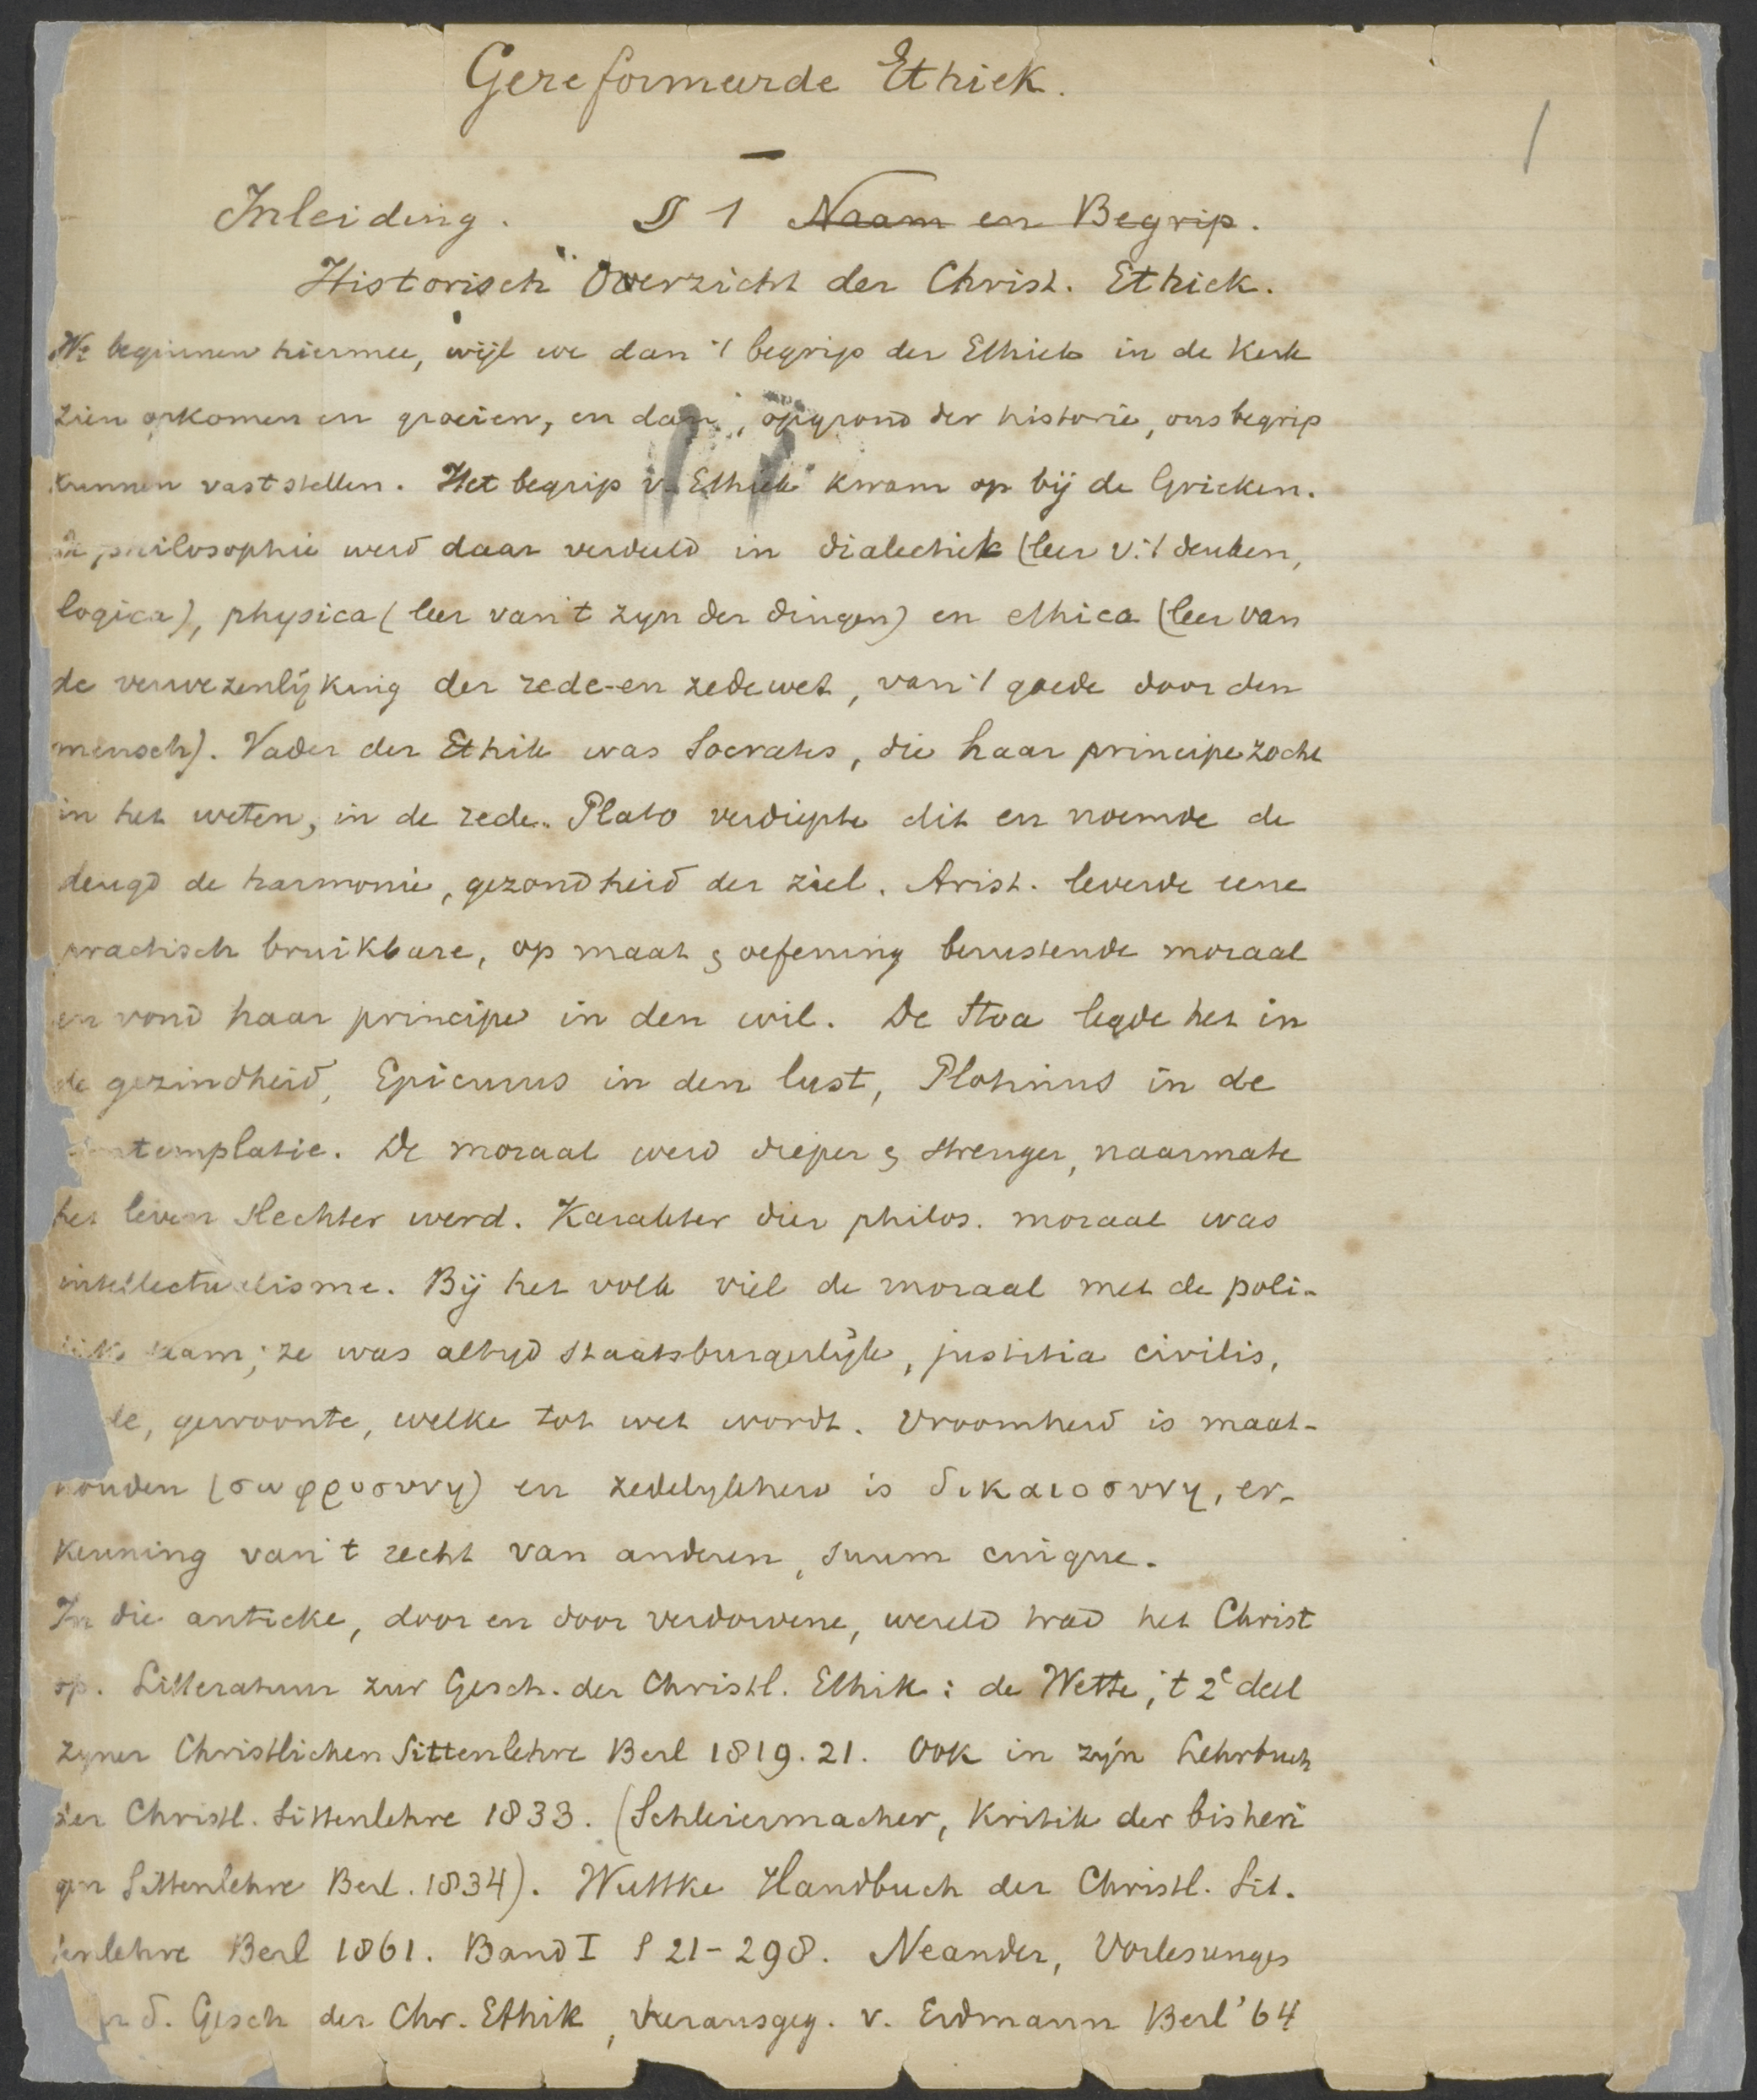 Gereformeerde Ethiek.
1
Inleiding. § 1 Naam en Begrip.
Historisch Overzicht der Christ. Ethiek.
We beginnen hiermee, wijl we dan 't begrip der Ethiek in de Kerk
zien opkomen en groeien, en dan, op grond der historie, ons begrip
kunnen vaststellen. Het begrip v. Ethiek kwam op bij de Grieken.
De philosophie werd daar verdeeld in dialectiek (leer v. 't denken,
logica), physica (leer van 't zyn der dingen) en ethica (leer van
de verwezenlijking der rede- en zedewet, van 't goede door den
mensch). Vader der Ethik was Socrates, die haar principe zocht
in het weten, in de rede. Plato verdiepte dit en noemde de
deugd de harmonie, gezondheid der ziel. Arist. leverde eene
practisch bruikbare, op maat & oefening berustende moraal
en vond haar principe in den wil. De Stoa legde het in
de gezindheid, Epicurus in den lust, Plotinus in de
contemplatie. De moraal werd dieper & strenger, naarmate
het leven slechter werd. Karakter dier philos. moraal was
intellectualisme. Bij het volk viel de moraal met de poli-
tiek saam; ze was altyd staatsburgerlijk, justitia civilis,
de, gewoonte, welke tot wet wordt. Vroomheid is maat-
houden (σωφροσυνη) en zedelykheid is δικαιοσυνη, er-
kenning van 't recht van anderen, suum cuique.
In die antieke, door en door verdorvene, wereld trad het Christ
op. Litteratuur zur Gesch. der Christl. Ethik: de Wette, 't 2e deel
zyner Christlichen Sittenlehre Berl 1819.21. Ook in zyn Lehrbuch
der Christl. Sittenlehre 1833. (Schleiermacher, Kritik der bisheri
gen Sittenlehre Berl. 1834). Wuttke Handbuch der Christl. Sit-
tenlehre Berl 1861. Band I S 21-298. Neander, Vorlesunges
d. Gesch der Chr. Ethik, herausgeg. v. Erdmann Berl '64